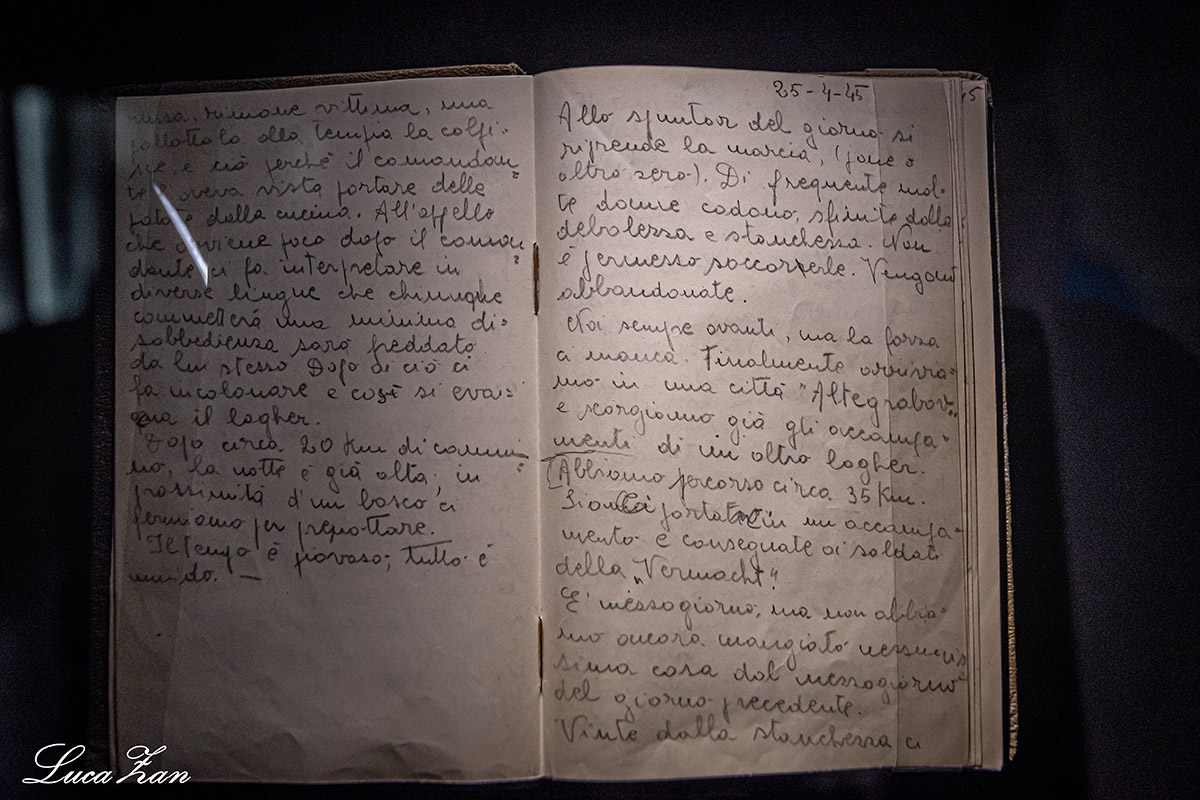 russa, rimane vittima, una
pallottola alla tempia la colpi=
sce, e ciò perché il comandan=
te l'aveva vista portare delle
patate dalla cucina. All'appello
che avviene poco dopo il coman=
dante ci fa interpretare in
diverse lingue che chiunghe
commetterá una minima di=
sobbedienza sarà freddato
da lui stesso Dopo di ciò ci
fa incolonare e così si eva=
qua il lagher.
Dopo circa 20 Km di cammi=
no, la notte è già alta, in
prossimità d'un bosco ci
fermiamo per pernottare.
Il tempo è piovoso; tutto è
umido. —
25-4-45
Allo spuntar del giorno si
riprende la marcia, (pane o
altro zero). Di frequente mol=
te donne cadono, sfinite dalla
debolezza e stanchezza. Non
è permesso soccorrerle. Vengono
abbandonate.
Noi sempre avanti, ma la forza
ci manca. Finalmente arrivia=
mo in una città "Altegrabov"
e scorgiamo già gli accampa=
menti di un altro lagher.
(Abbiamo percorso circa 35 Km.
Siamo portate in un accampa=
mento e consegnate ai soldati
della „Vermacht".
E' mezzogiorno, ma non abbia=
mo ancora mangiato nessunis
sima cosa dal mezzogiorno
del giorno precedente.
Vinte dalla stanchezza ci
15
Luca Zan